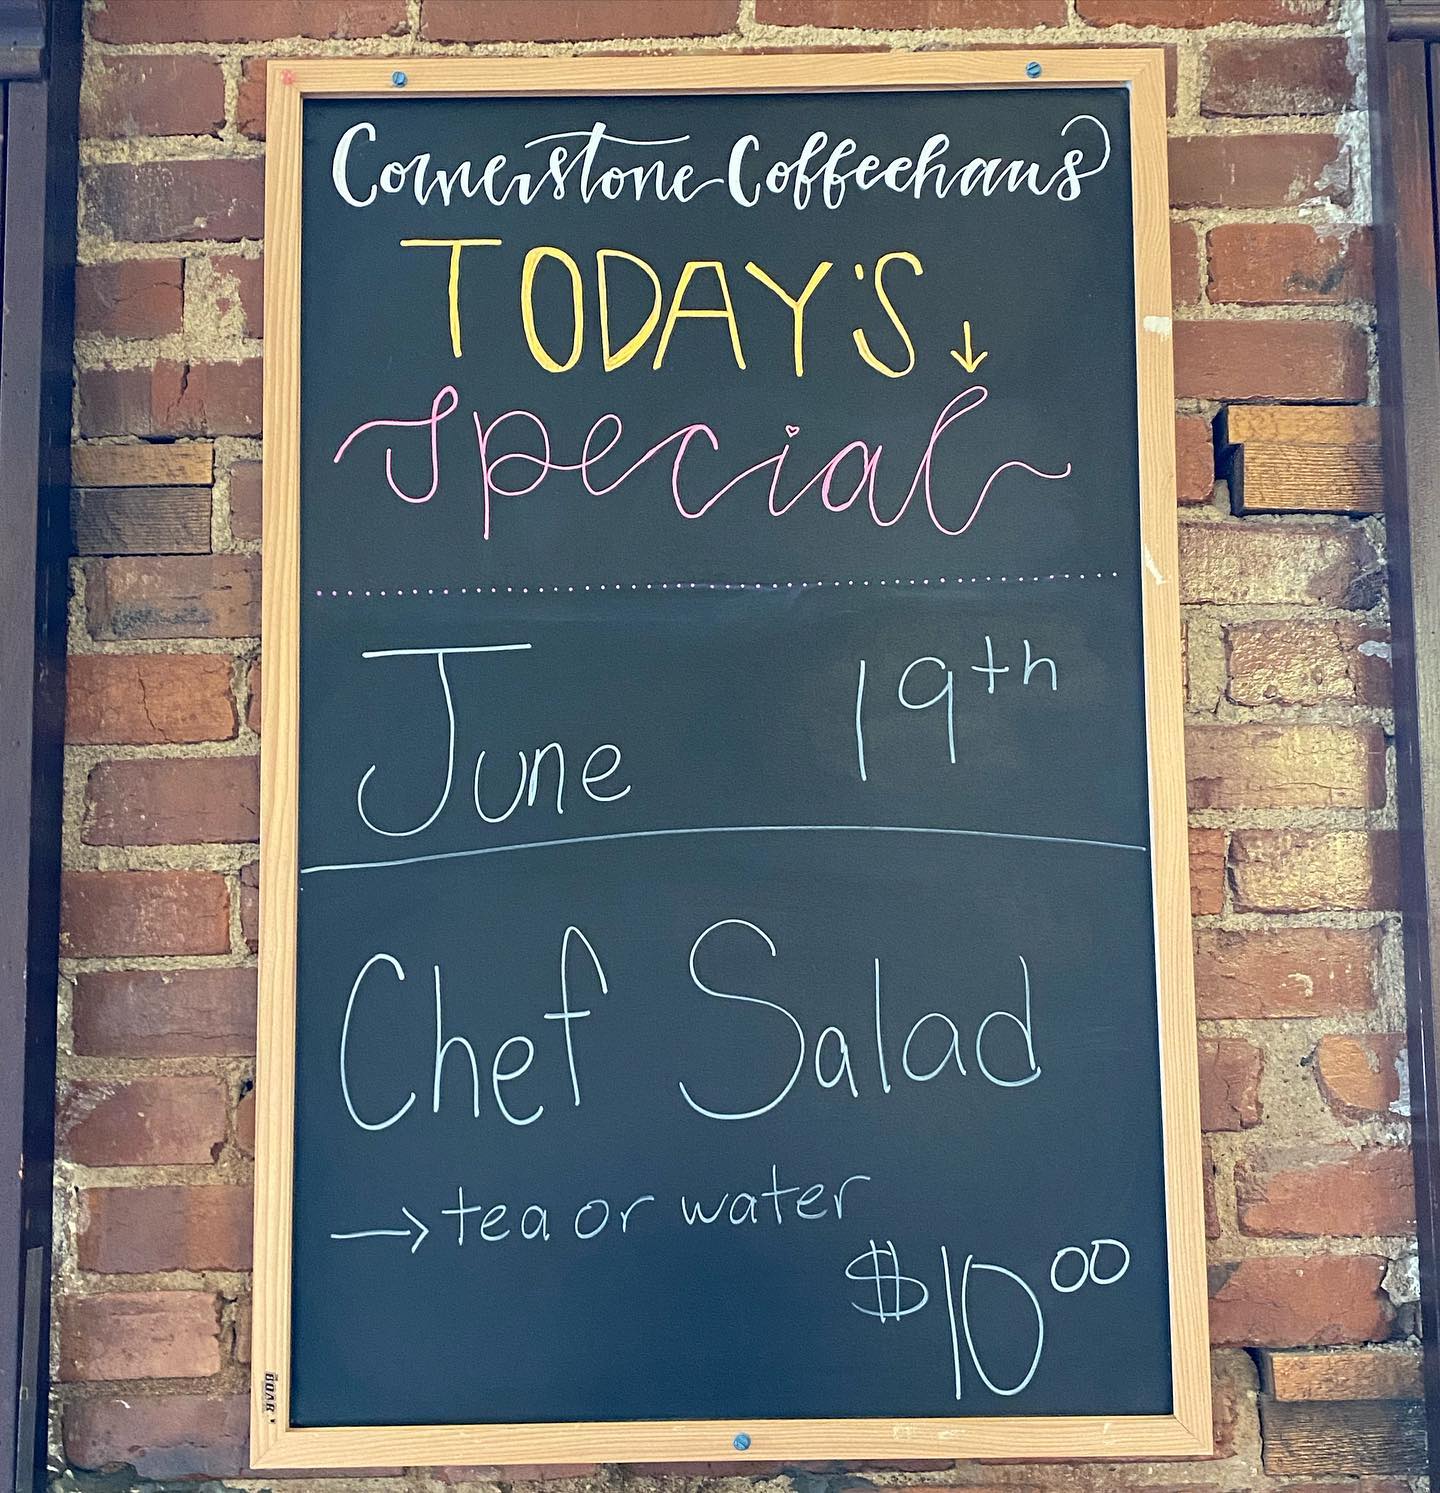 Cornerstone Coffeehaus
TODAY'S ↓
special
June 19th
Chef Salad
→ tea or water
$10.00